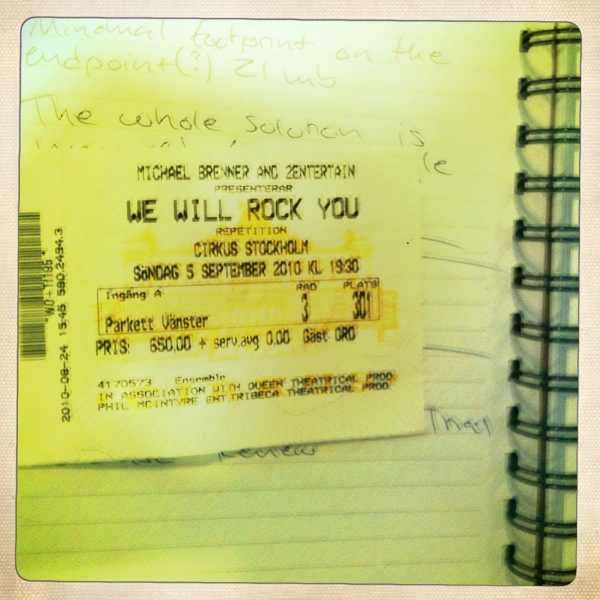 Minimal footprint on the
endpoint(?) 21 mb
The whole solution is
MICHAEL BRENNER AND 2ENTERTAIN
PRESENTERAR
WE WILL ROCK YOU
REPETITION
CIRKUS STOCKHOLM
SÖNDAG 5 SEPTEMBER 2010 KL 19:30
Ingång A RAD PLATS
Parkett Vänster 3 301
PRIS: 650,00 + serv.avg 0,00 Gäst ORD
4170573 Ensemble
IN ASSOCIATION WITH QUEEN THEATRICAL PROD
PHIL MCINTYRE ENT TRIBECA THEATRICAL PROD
2010-08-24 15:45 580.2494.3